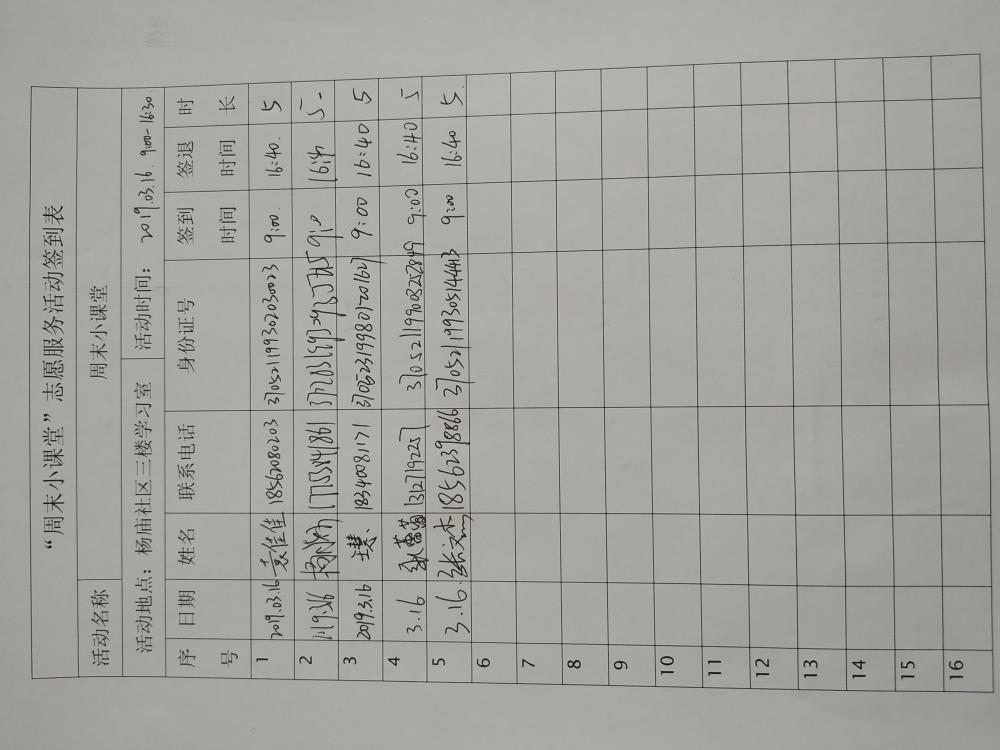 “周末小课堂”志愿服务活动签到表
活动名称 周末小课堂
活动地点：杨庙社区三楼学习室 活动时间： 2019.03.16. 9:00-16:30.
序号 日期 姓名 联系电话 身份证号 签到时间 签退时间 时长
1 2019.03.16 袁佳佳 18562080203 370521199302030023 9:00. 16:40. 5
2 5
3 2019.3.16 18340081171 9:00 16:40 5
4 3.16 13127192257 370521199008252849 9:00 16:40 5
5 3.16. 18562398866 370521199305144413 9:00 16:40 5.
6
7
8
9
10
11
12
13
14
15
16